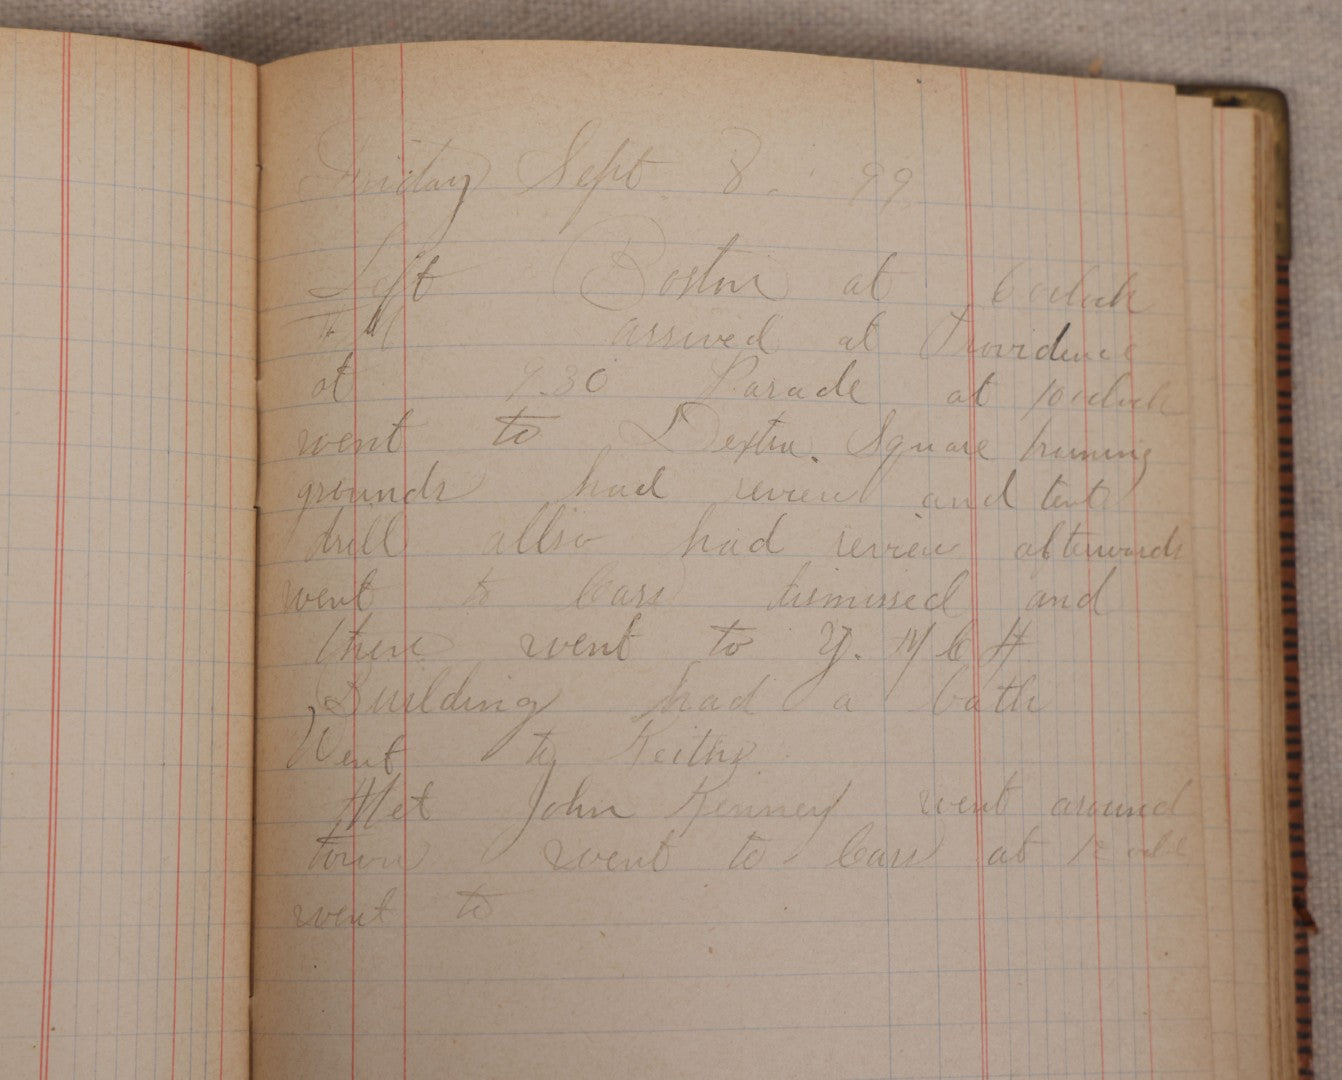 Friday Sept 8. '99.
Left Boston at 6 oclock
A M arrived at Providence
at 9.30 Parade at 10 oclock
went to Dexter. Square
grounds had review and tent
drill allso had review afterwards
went to Cars dismissed and
then went to Y. M C A
Building had a bath
Went to Keiths
Met John Kenney went around
town went to Cars at 12
went to